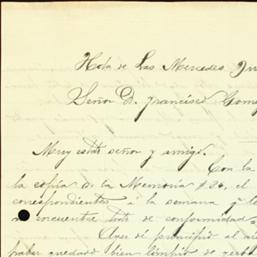 Hda de Las Mercedes
Señor D. Francisco
Muy estdo señor y amigo.
Con la
la copia de la Memoria # 26, el
correspondiente á la semana y
encuentre todo de conformidad
haber quedado bien limpio de